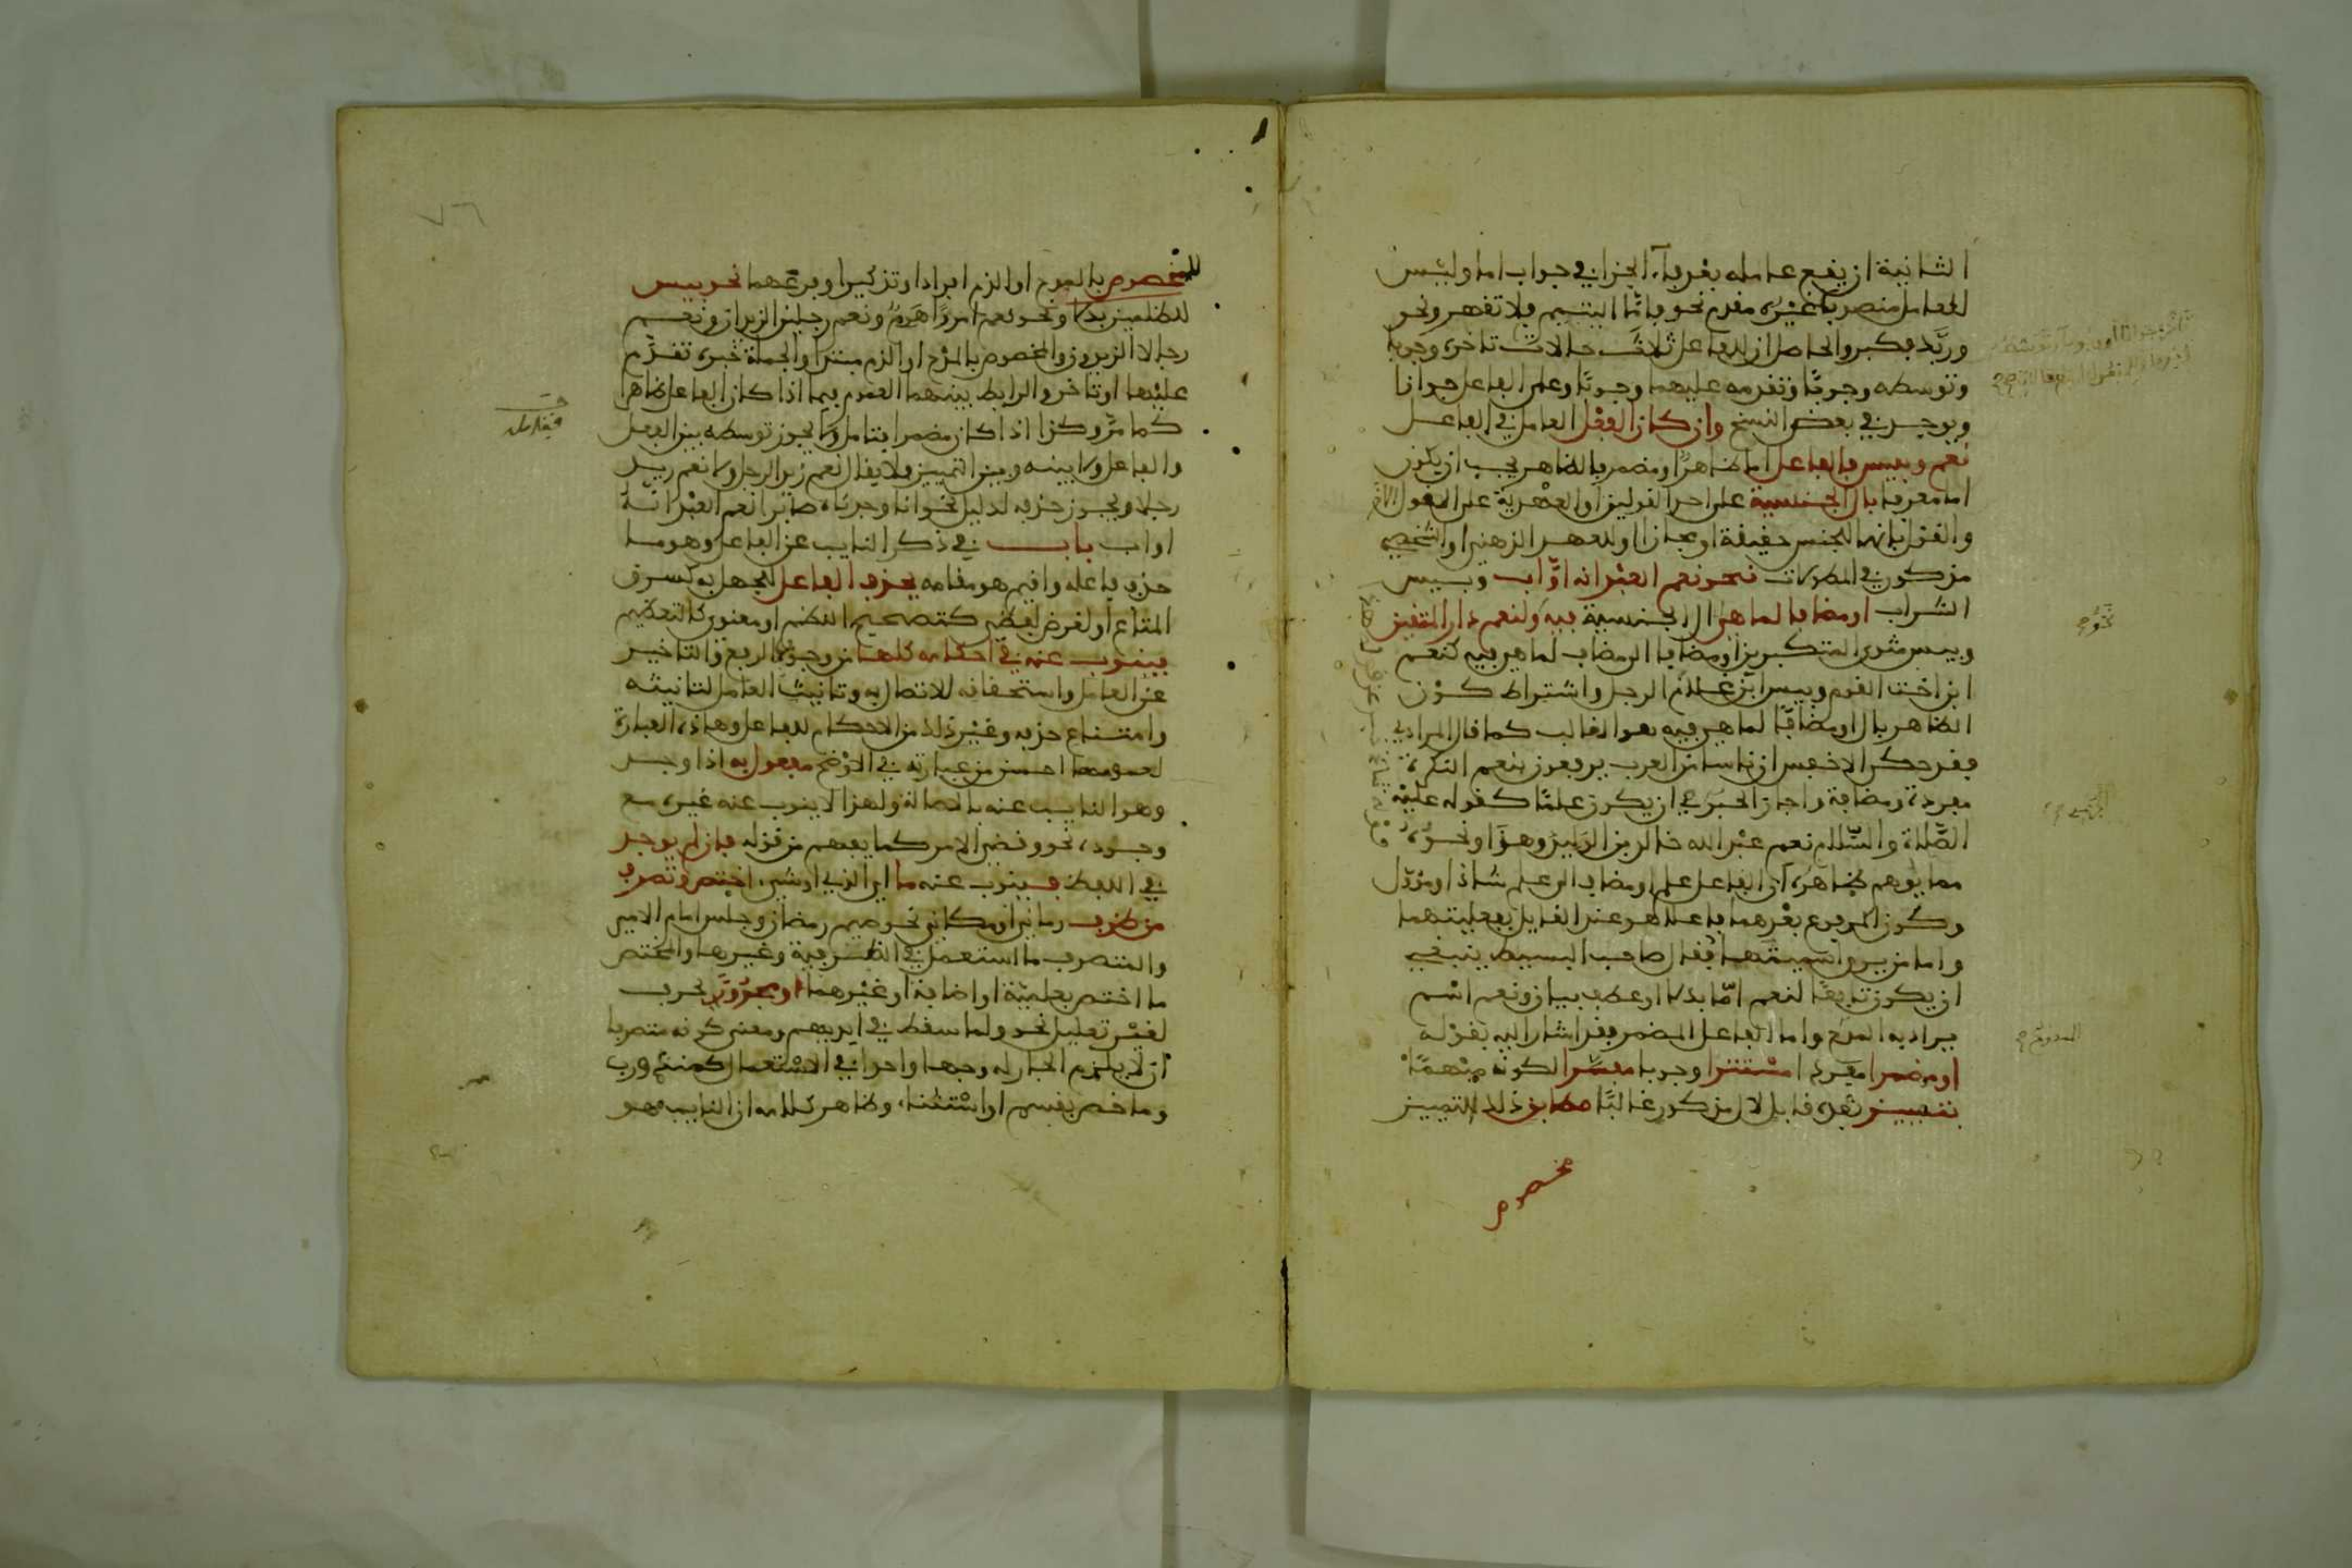 الثانية ان يقع عامله بعد فاء الجزا في جواب اما وليس
للعامل منصوب غيره مقدم نحو فاما اليتيم فلا تقهر ونحو
وربك فكبر والحاصل ان للفاعل ثلاث حالات تاخره وجوبا
وتوسطه وجوبا وتقدمه عليهما وجوبا وعلى الفاعل جوازا
ويوجد في بعض النسخ وان كان الفعل العامل في الفاعل
نعم وبيس فالفاعل اما ظاهر او مضمر فالظاهر يجب ان يكون
اما معرفا بال الجنسية على احد القولين او العهدية على القول الاخر
والقول بانها للجنس حقيقة او مجازا او للعهد الذهني او الشخصي
مذكور في المطولات نحو نعم العبد انه اواب وبيس
الشراب او مضافا لما هي ال الجنسية فيه ولنعم دار المتقين
وبيس مثوى المتكبرين او مضافا الى مضاف لما هي فيه كنعم
ابن اخت القوم وبيس ابن غلام الرجل واشتراط كون
الظاهر بال او مضافا لما هي فيه هو الغالب كما قال المرادي
فقد حكى الاخفش ان ناسا من العرب يرفعون بنعم النكرة
مفردة ومضافة واجاز الجرمي ان يكون علما كقوله عليه
الصلاة والسلام نعم عبد الله خالد بن الوليد وهذا ونحوه
مما يوهم ظاهره ان الفاعل علم او مضاف الى علم شاذ او مؤول
وكون المرفوع بعدهما فاعلا هو عند القايل بفعليتهما
واما من يرى اسميتهما فقال صاحب البسيط ينبغي
ان يكون تابعا لنعم اما بدلا او عطف بيان ونعم اسم
يراد به المدح واما الفاعل المضمر فقد اشار اليه بقوله
او مضمرا مفردا مستترا وجوبا مفسرا لكونه مبهما
بتمييز بعده قابل لال مذكور غالبا مطابق ذلك التمييز
مخصوص
للمخصوص بالمدح او الذم افرادا وتذكيرا وفرعهما نحو بيس
للظالمين بدلا ونحو نعم امرءا هرم ونعم رجلين الزيدان ونعم
رجالا الزيدون والمخصوص بالمدح او الذم مبتدا والجملة خبره تقدم
عليها او تاخر والرابط بينهما العموم فيما اذا كان الفاعل ظاهرا
كما مر وكذا اذا كان مضمرا بتامل ولا يجوز توسطه بين الفعل
فيتامل
والفاعل ولا بينه وبين التمييز فلا يقال نعم زيد الرجل ولا نعم زيد
رجلا ويجوز حذفه لدليل نحو انا وجدناه صابرا نعم العبد انه
اواب باب في ذكر النايب عن الفاعل وهو ما
حذف فاعله واقيم هو مقامه يحذف الفاعل للجهل به كسرق
المتاع او لغرض لفظي كتصحيح النظم او معنوي كالتعظيم
فينوب عنه في احكامه كلها من وجوب الرفع والتاخير
عن العامل واستحقاقه للاتصال به وتانيث العامل لتانيثه
وامتناع حذفه وغير ذلك من الاحكام للفاعل وهاذه العبارة
لعمومها احسن من عبارته في الاوضح مفعول به اذا وجد
وهو النايب عنه بالاصالة ولهذا لا ينوب عنه غيره مع
وجوده نحو وقضي الامر كما يفهم من قوله فان لم يوجد
في اللفظ فينوب عنه ما اي الذي او شيء اختص وتصرف
من ظرف زماني او مكاني نحو صيم رمضان وجلس امام الامير
والمتصرف ما استعمل في الظرفية وغيرها والمختص
ما اختص بعلمية او اضافة او غيرهما او مجرور بحرف
لغير تعليل نحو ولما سقط في ايديهم ومعنى كونه متصرفا
ان لا يلزم الجار له وجها واحدا في الاستعمال كمنذ ورب
وما خص بقسم او استثناء وظاهر كلامه ان النايب هو